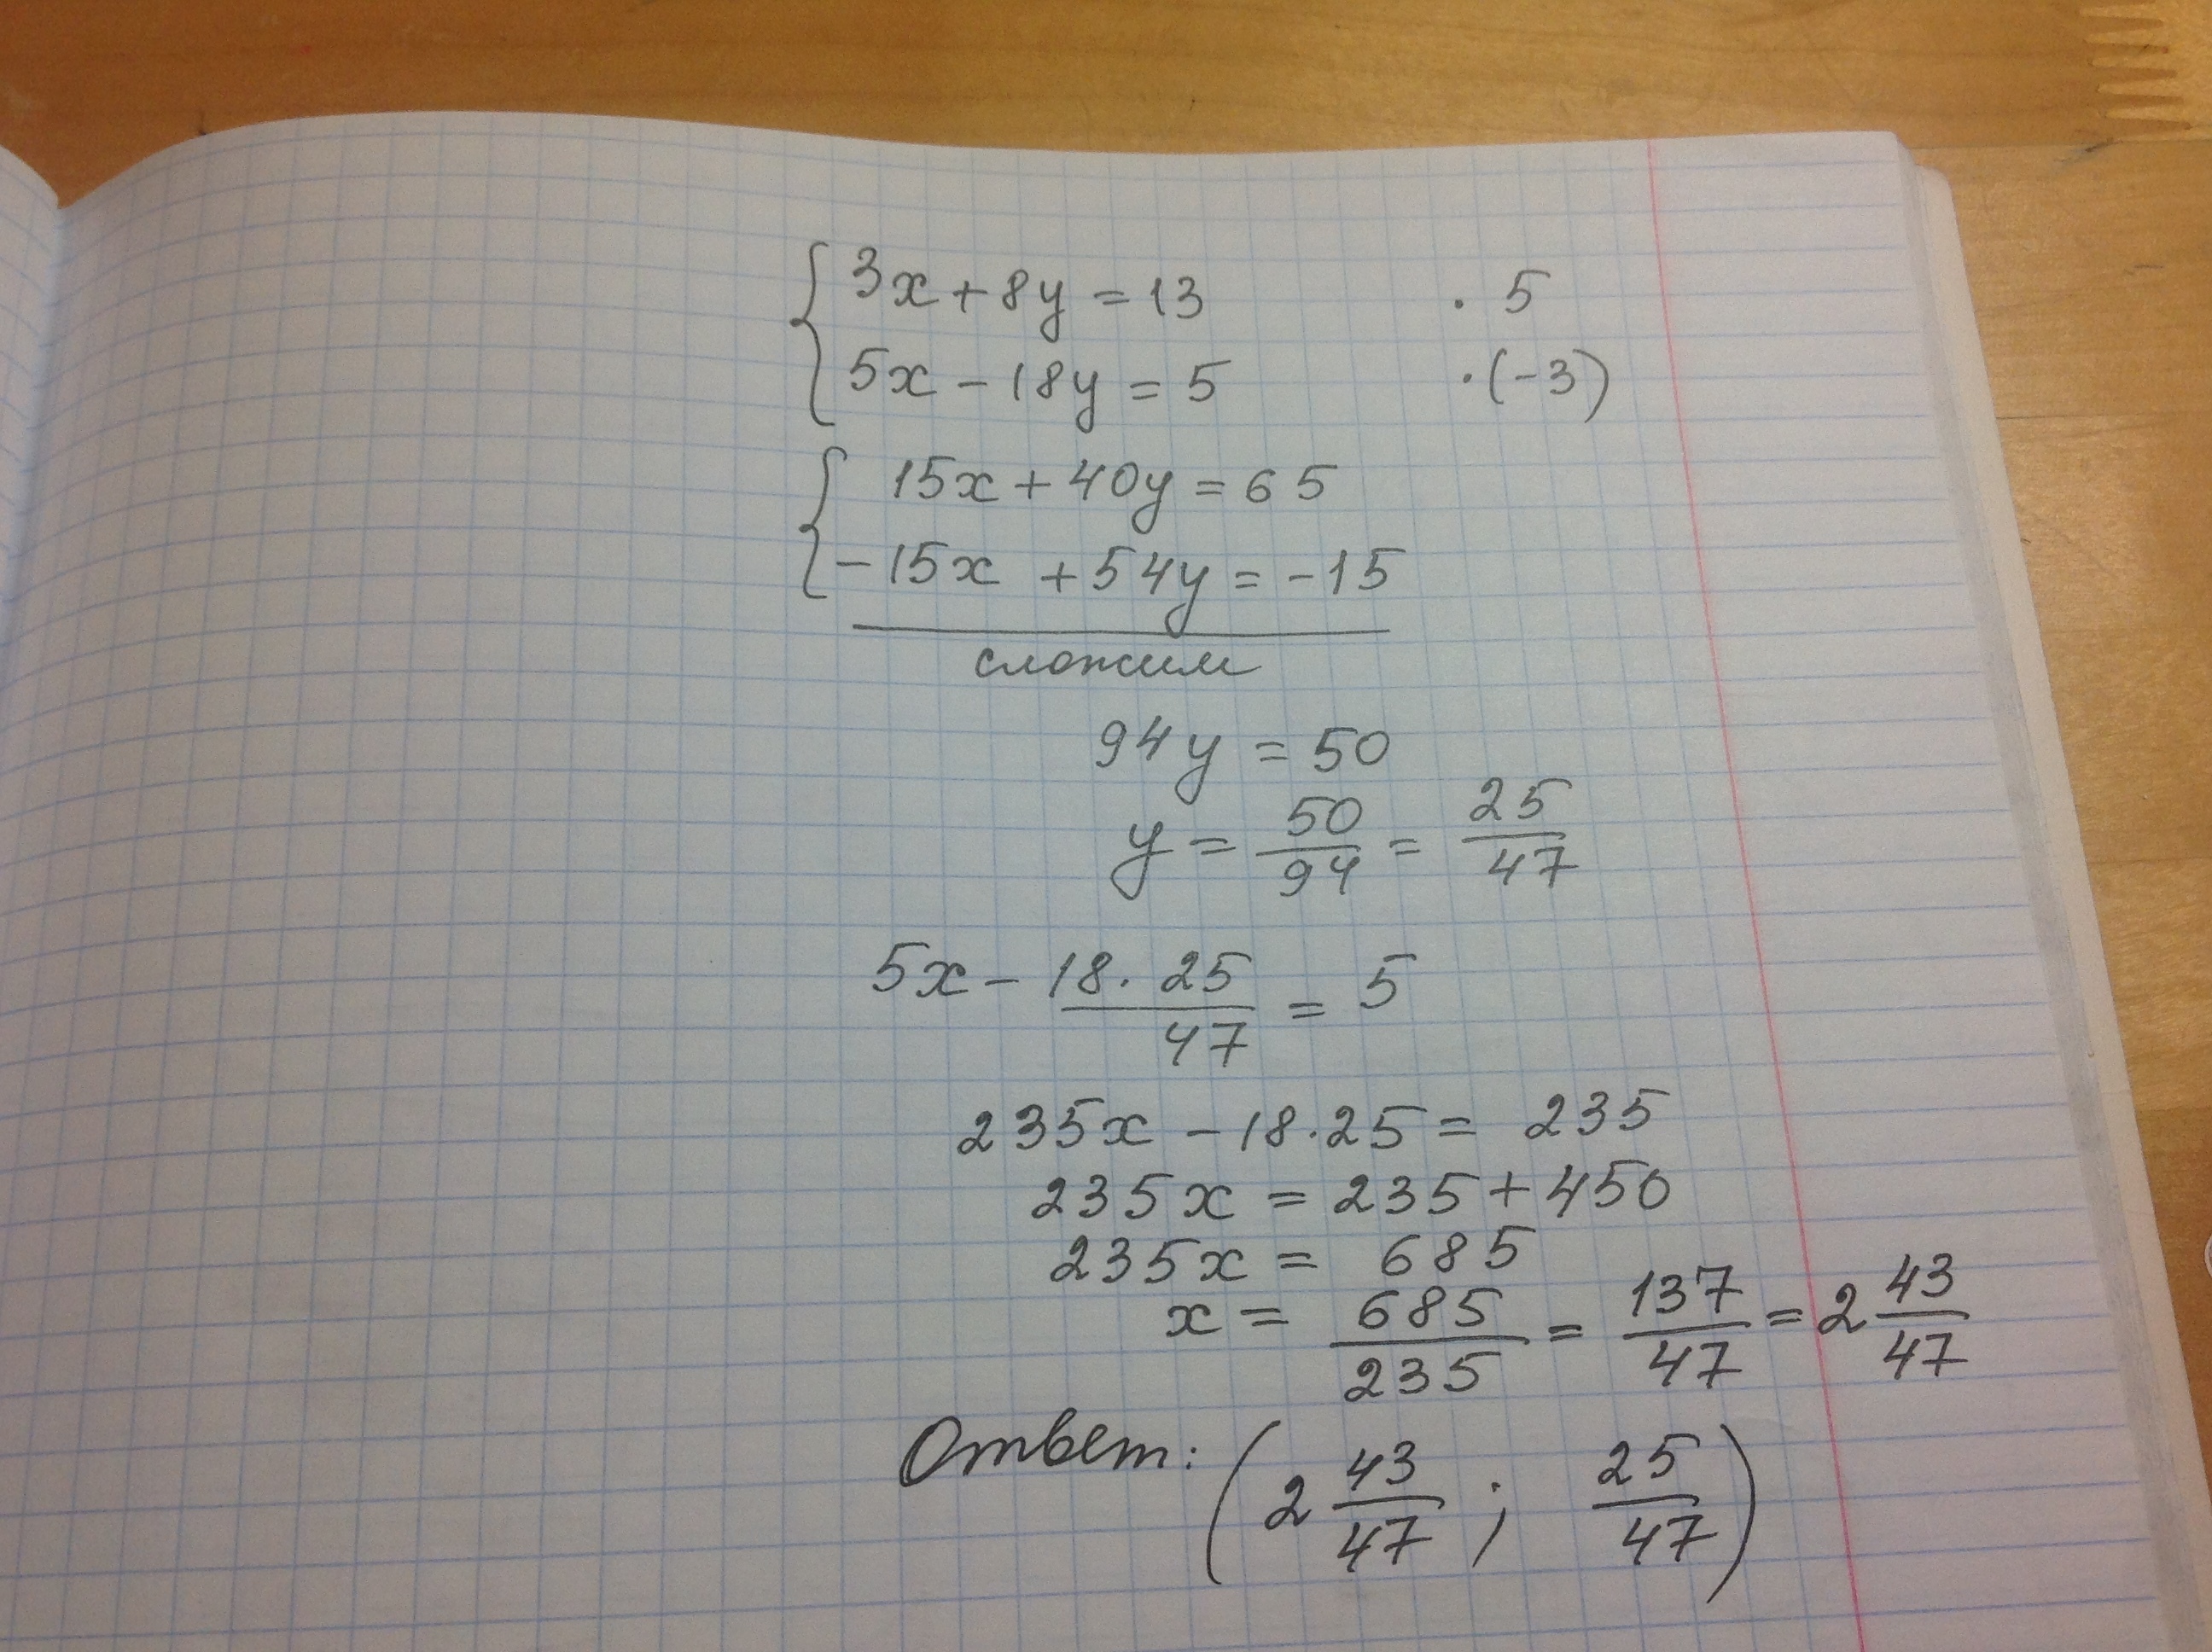 { 3x + 8y = 13 · 5
5x - 18y = 5 · (-3)
{ 15x + 40y = 65
-15x + 54y = -15
сложим
94y = 50
y = 50/94 = 25/47
5x - 18 · 25/47 = 5
235x - 18 · 25 = 235
235x = 235 + 450
235x = 685
x = 685/235 = 137/47 = 2 43/47
Ответ: (2 43/47 ; 25/47)